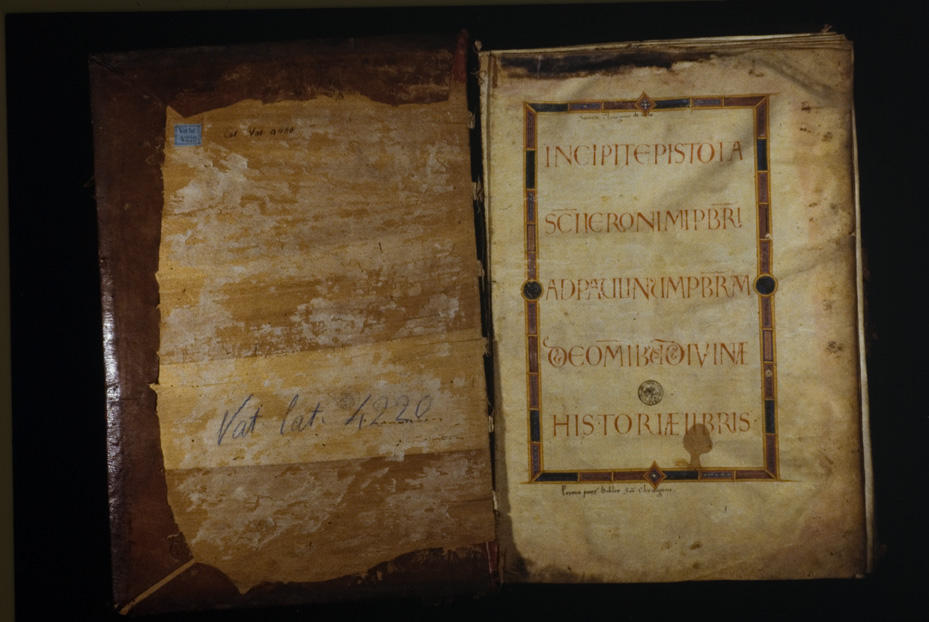 Vat lat
4220
Cod Vat 4220
Vat lat. 4220
INCIPIT EPISTOLA
SC̅I IERONIMI PBR̅I
AD PAULINUM PBR̅M
DE OM̅IB; DIVINAE
HISTORIAE LIBRIS·
Prima pars